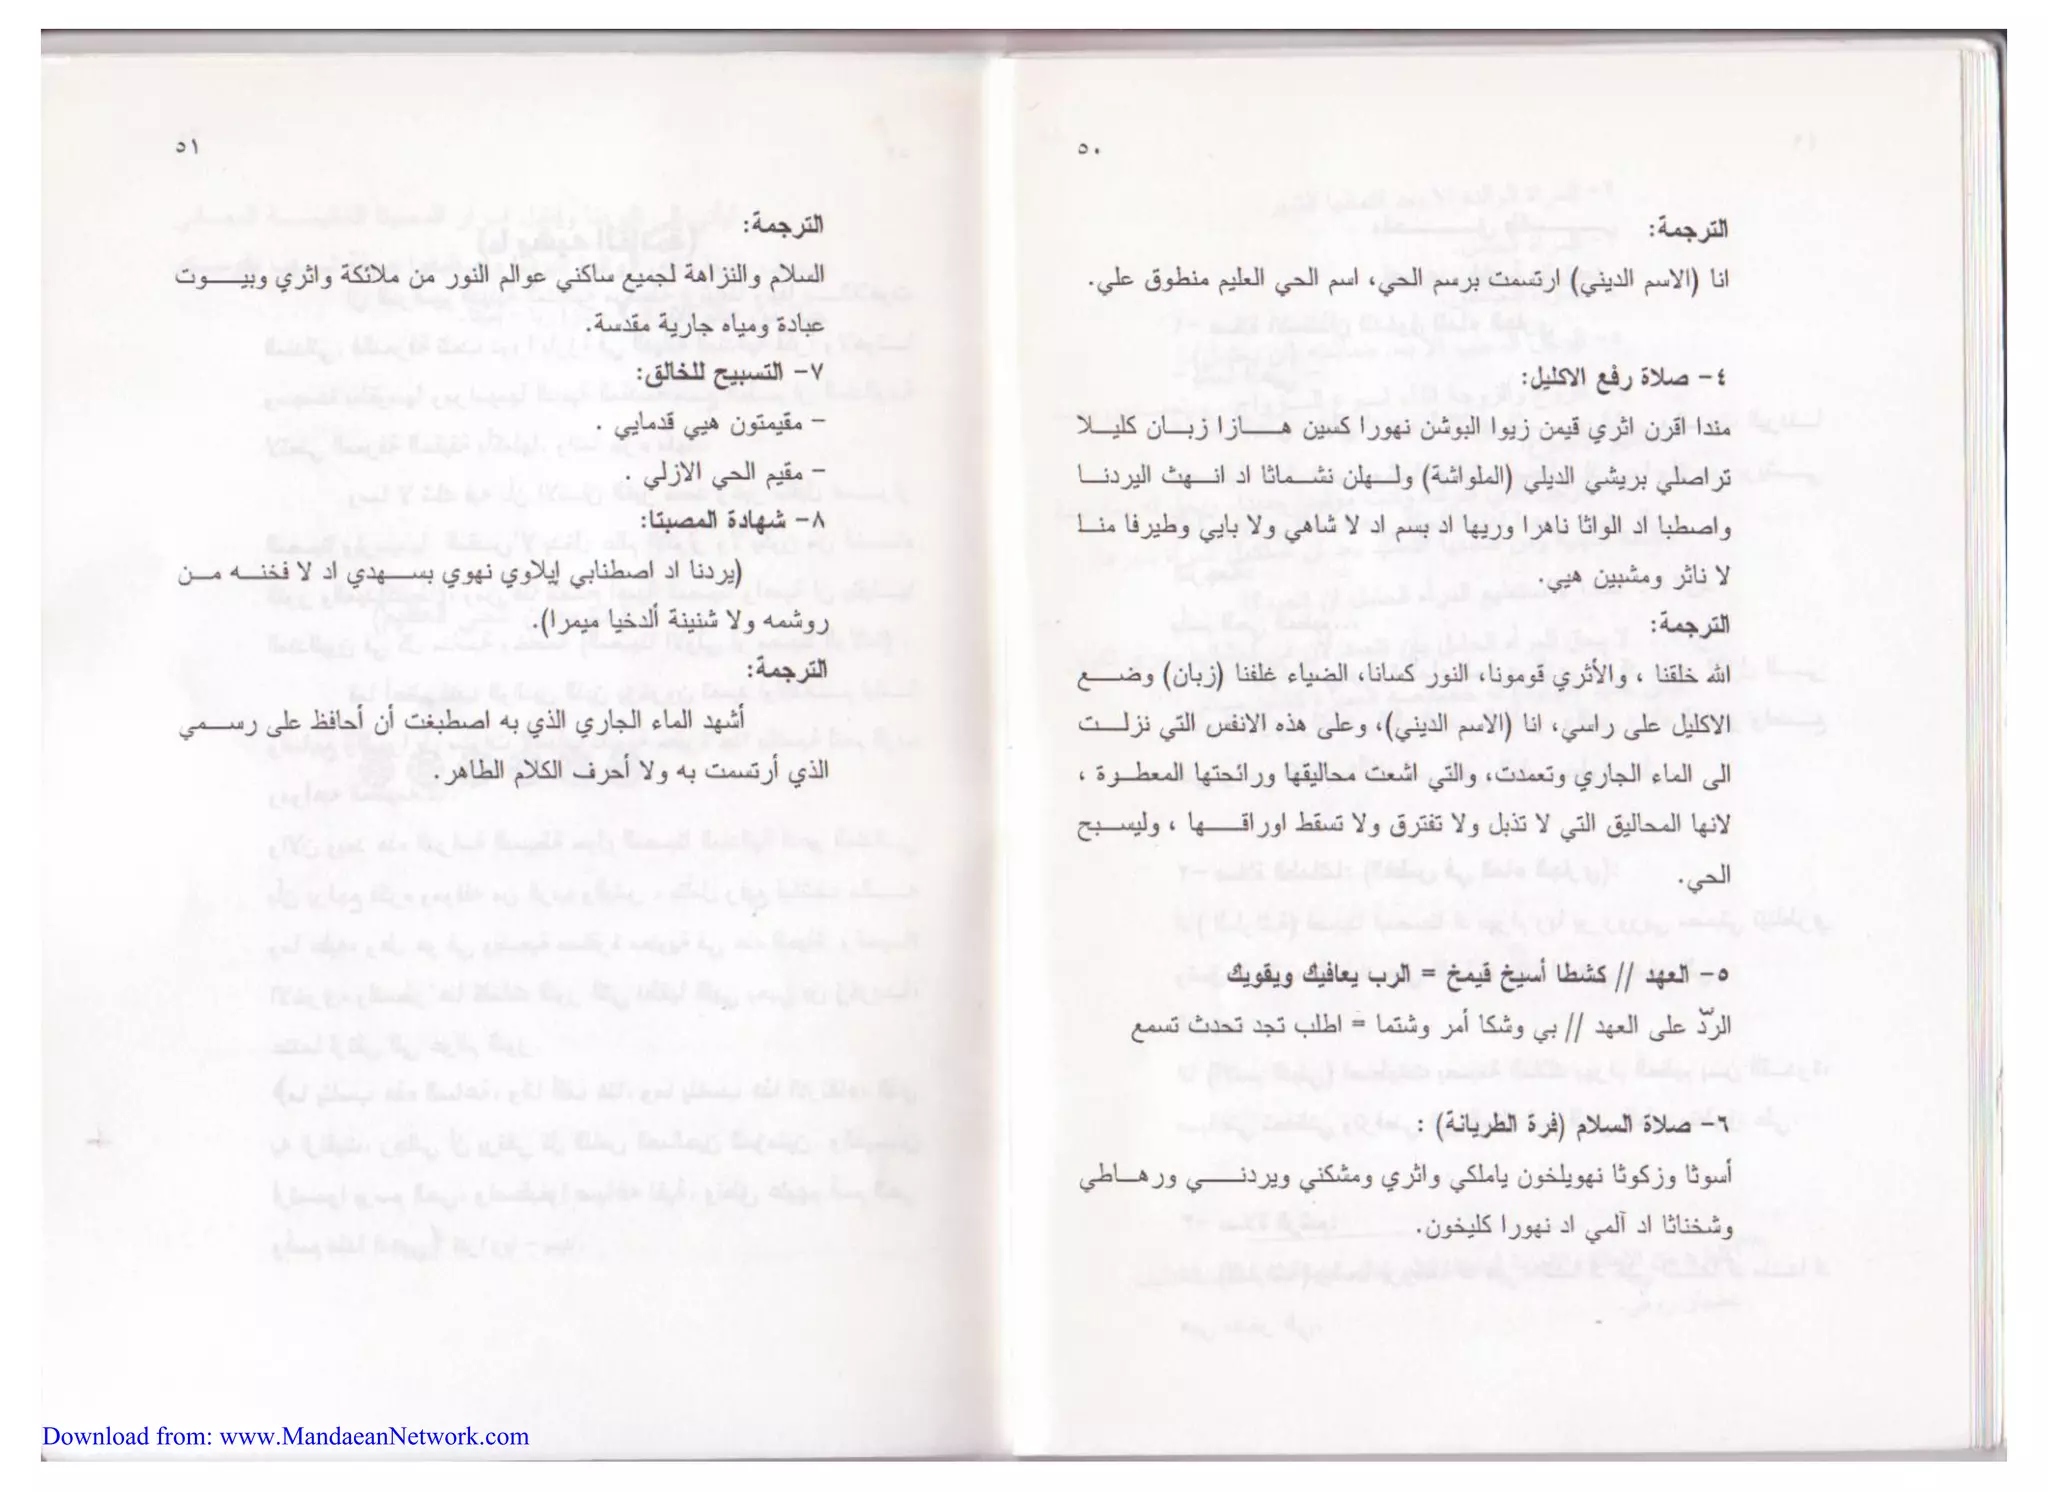 ٥٠
الترجمة:
انا (الاسم الديني) ارتسمت برسم الحي، اسم الحي العليم منطوق علي.
٤- صلاة رفع الاكليل:
مندا اقرن اثري قيمن زيوا البوشن نهورا كسين هازا زبان كليلا
تراصلي بريشي الديلي (الملواشة) ولهلن نشماثا اد انهث اليردنا
واصطبا اد الواثا ناهرا وريها اد بسم اد لا شاهي ولا يابي وطيرفا منا
لا ناثر ومشبين هيي.
الترجمة:
الله خلقنا ، والأثري قومونا، النور كسانا، الضياء غلفنا (زبان) وضع
الاكليل على راسي، انا (الاسم الديني)، وعلى هذه الانفس التي نزلت
الى الماء الجاري وتعمدت، والتي اشعت محاليقها ورائحتها المعطرة ،
لانها المحاليق التي لا تذبل ولا تفترق ولا تسقط اوراقها ، وليسبح
الحي.
٥- العهد // كشطا أسيخ قيمخ = الرب يعافيك ويقويك
الردّ على العهد // بي وشكا أمر وشتما = اطلب تجد تحدث تسمع
٦- صلاة السلام (فرة الطريانة) :
أسوثا وزكوثا نهويلخون ياملكي واثري ومشكني ويردني ورهاطي
وشخناثا اد ألمي اد نهورا كليخون.
٥١
الترجمة:
السلام والنزاهة لجميع ساكني عوالم النور من ملائكة واثري وبيوت
عبادة ومياه جارية مقدسة.
٧- التسبيح للخالق:
- مقيمتون هيي قدمايي .
- مقيم الحي الازلي .
٨- شهادة المصبتا:
(يردنا اد اصطنابي إيلاوي نهوي بسهدي اد لا فخنه من
روشمه ولا شنينة ألدخيا ميمرا).
الترجمة:
أشهد الماء الجاري الذي به اصطبغت أن أحافظ على رسمي
الذي أرتسمت به ولا أحرف الكلام الطاهر.
Download from: www.MandaeanNetwork.com